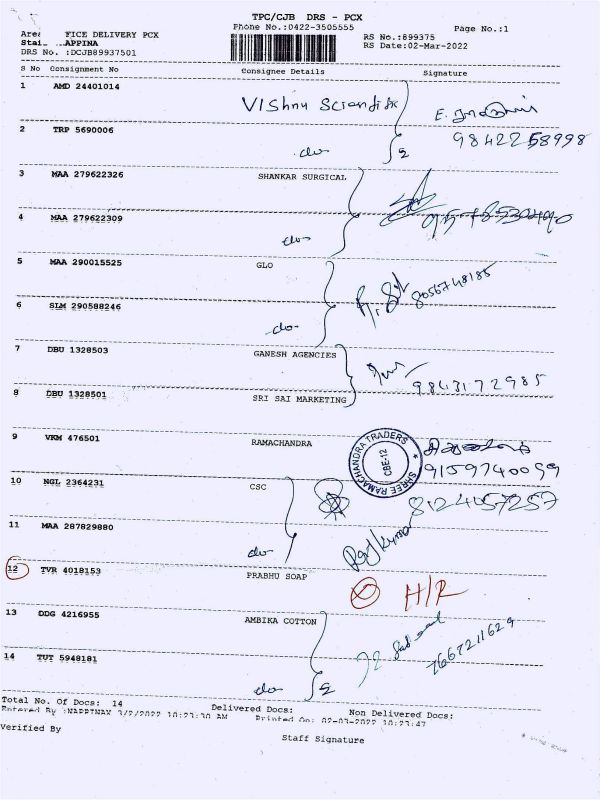 TPC/CJB DRS - PCX
Phone No.:0422-3505555
Page No.:1
FICE DELIVERY PCX
RS No.:899375
APPINA
RS Date:02-Mar-2022
DRS No. :DCJB89937501
S No Consignment No Consignee Details Signature
1 AMD 24401014
Vishnu Scientific
9842258998
2 TRP 5690006
do
3 MAA 279622326 SHANKAR SURGICAL
4 MAA 279622309
do
5 MAA 290015525 GLO
8056748185
6 SLM 290588246
do
7 DBU 1328503 GANESH AGENCIES
9843172985
8 DBU 1328501 SRI SAI MARKETING
9 VKM 476501 RAMACHANDRA
SHREE RAMACHANDRA TRADERS
CBE-12
9159740099
10 NGL 2364231 CSC
8124057257
11 MAA 287829880
do
Rajkumar
12 TVR 4018153 PRABHU SOAP
H/R
13 DDG 4216955 AMBIKA COTTON
7667211629
14 TUT 5948181
do
Total No. Of Docs: 14 Delivered Docs: Non Delivered Docs:
Entered By :NAPPINAM 3/2/2022 10:23:30 AM Printed On: 02-03-2022 10:23:47
Verified By
Staff Signature